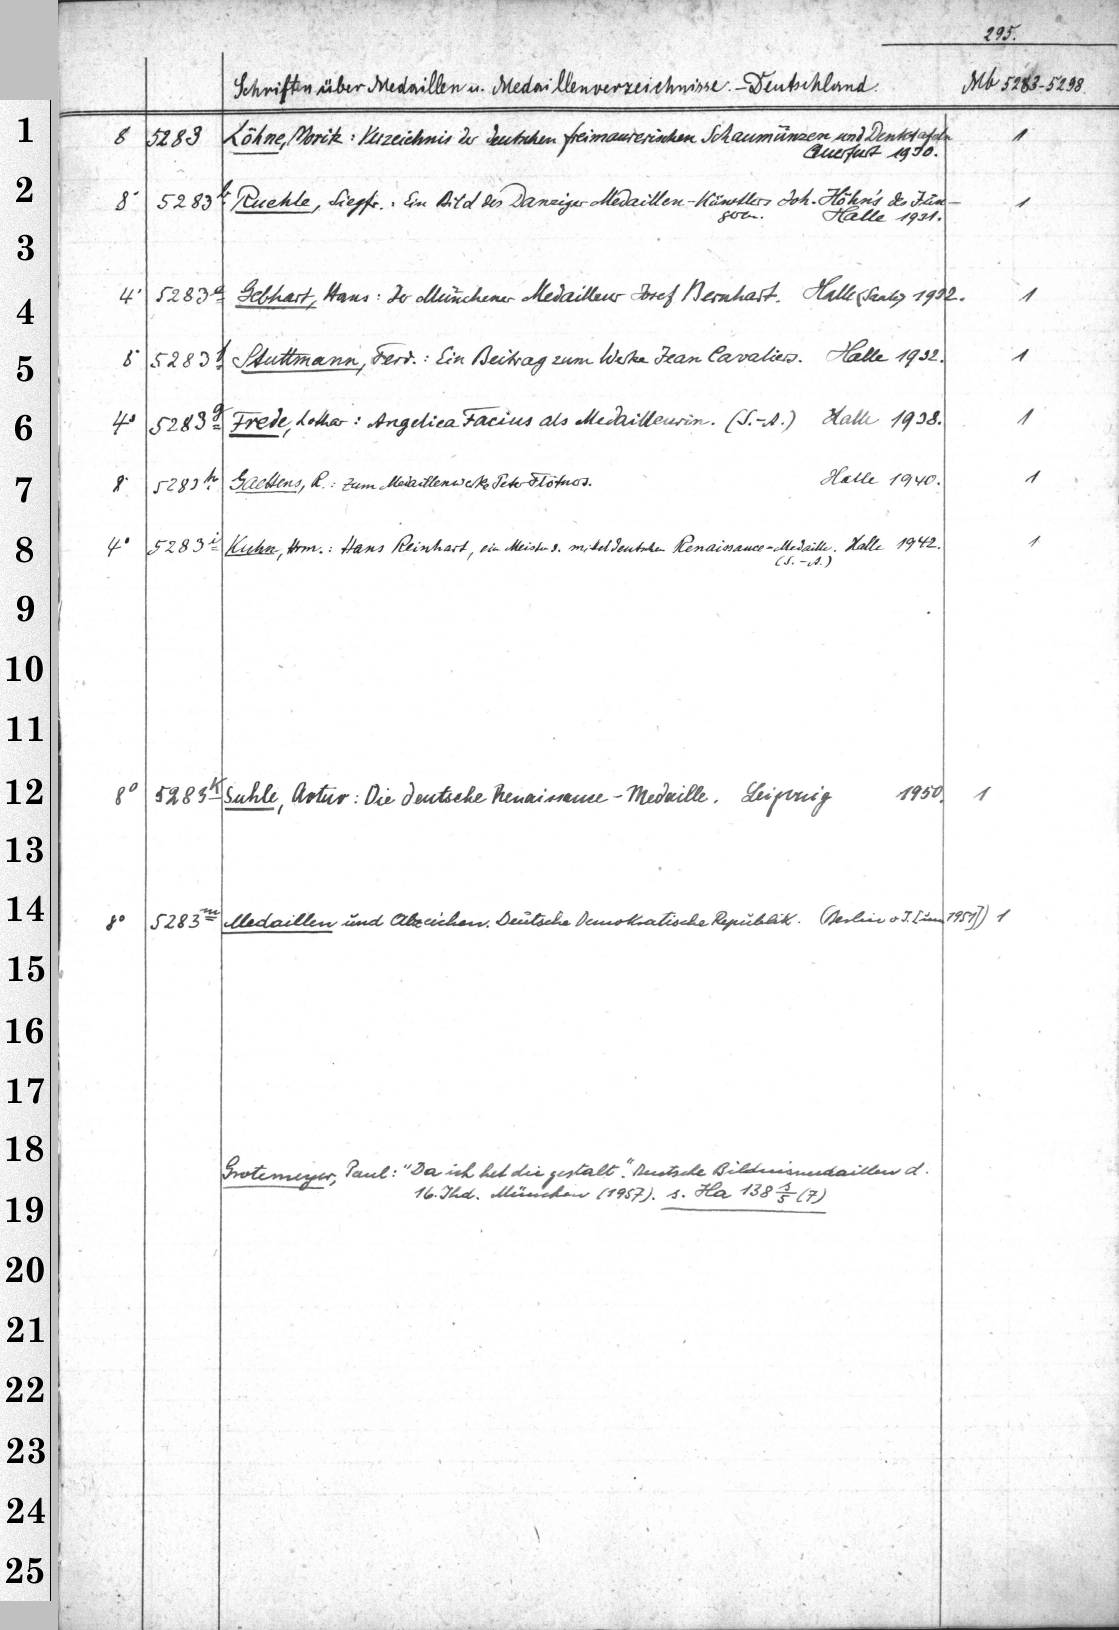 295.
Schriften über Medaillen u. Medaillenverzeichnisse. - Deutschland. Mb 5283-5298.
1
8 5283 Löhne, Moritz: Verzeichnis der deutschen freimaurerischen Schaumünzen und Denktafeln 1
Querfurt 1930.
2
8° 5283 b Ruehle, Siegfr.: Ein Bild des Danziger Medaillen-Künstlers Joh. Höhn's des Jün- 1
geren. Halle 1931.
3
4
4° 5283 Gebhart, Hans: Der Münchener Medailleur Josef Bernhart. Halle (Saale) 1932. 1
5
8° 5283 f Stuttmann, Ferd.: Ein Beitrag zum Werke Jean Cavaliers. Halle 1932. 1
6
4° 5283 g Frede, Lothar: Angelica Facius als Medailleurin. (S.-A.) Halle 1938. 1
7
8° 5283 h Gaettens, R.: Zum Medaillenwerke Peter Flötners. Halle 1940. 1
8
4° 5283 i Kuhn, Hrm.: Hans Reinhart, ein Meister d. mitteldeutschen Renaissance-Medaille. Halle 1942. 1
(S.-A.)
9
10
11
12
8° 5283 k Suhle, Artur: Die deutsche Renaissance-Medaille. Leipzig 1950. 1
13
14
8° 5283 m Medaillen und Abzeichen. Deutsche Demokratische Republik. (Berlin o.J. [um 1951]) 1
15
16
17
18
Grotemeyer, Paul: "Da ich het die gestalt". Deutsche Bildnismedaillen d.
16. Jhd. München (1957). s. Ha 138 s/5 (7)
19
20
21
22
23
24
25